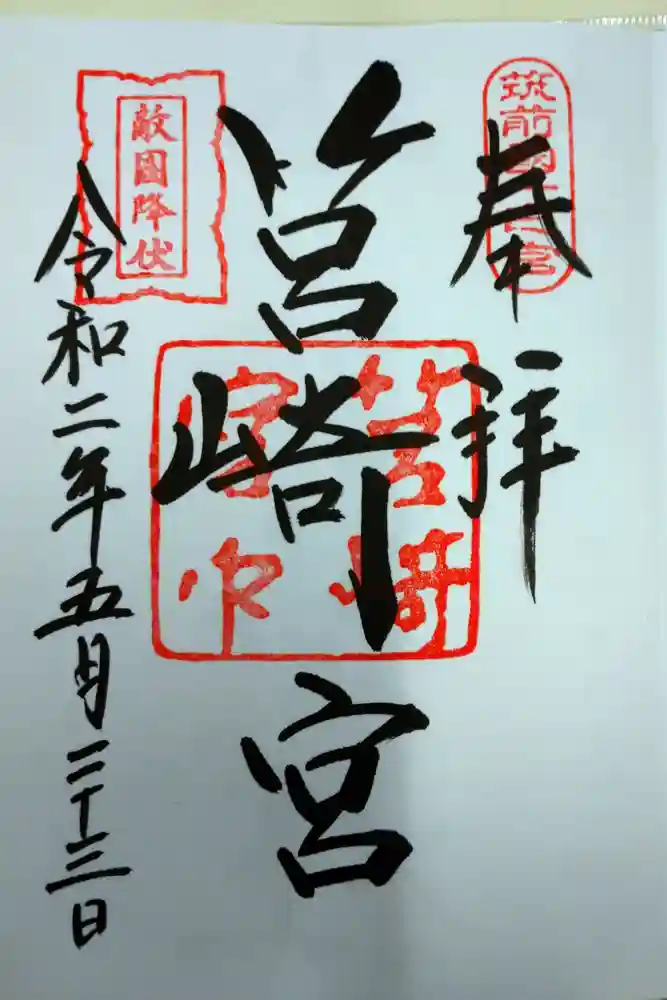 奉拝
筑前國一之宮
筥崎宮
筥崎
宮印
敵國降伏
令和二年五月二十三日